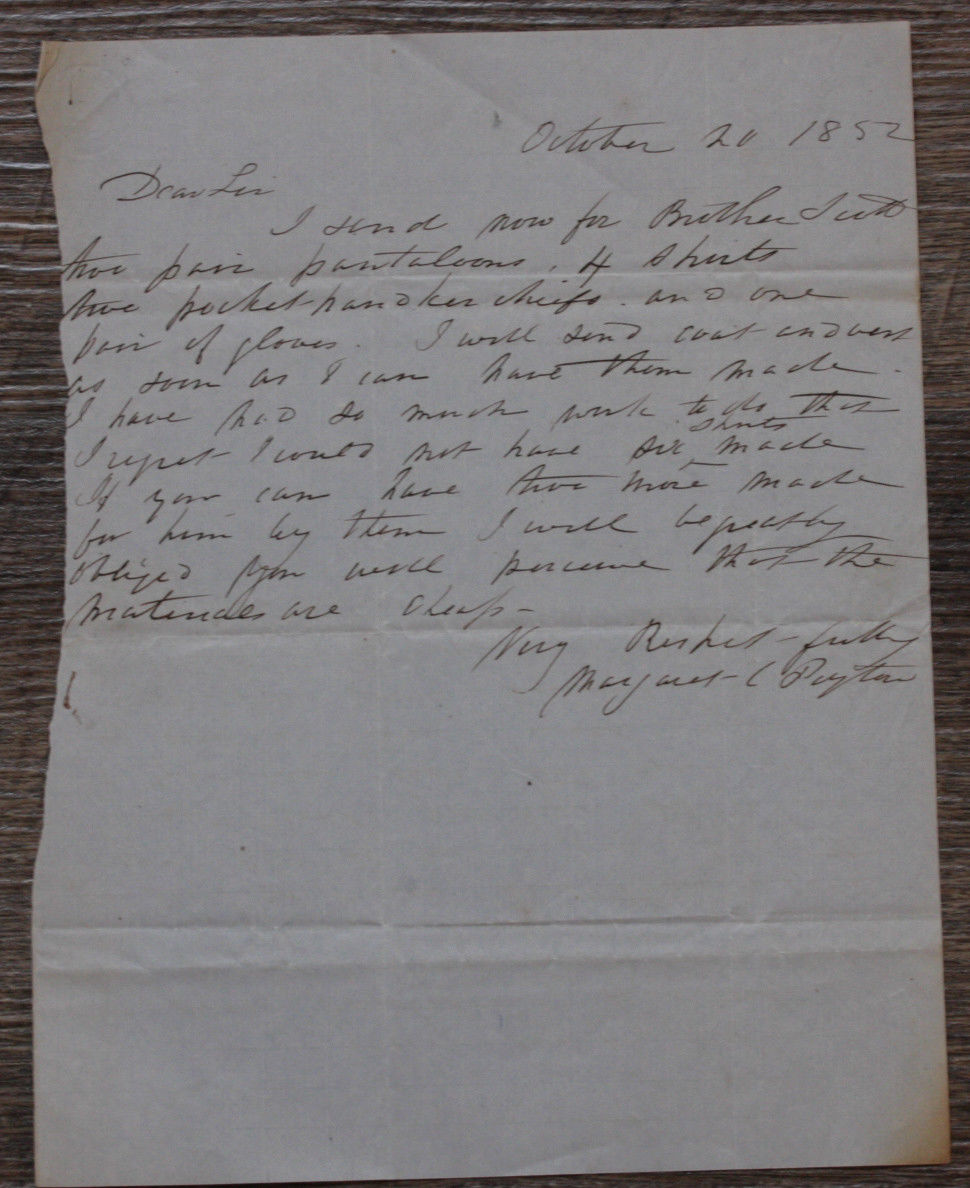 October 20 1852
Dear Sir
I send now for Brother Scott
two pair pantaloons, 4 shirts
two pocket handkerchiefs. and one
pair of gloves. I will send coat and vest
as soon as I can have them made.
I have had so much work to do that
I regret I could not have six shirts made
If you can have two more made
for him by them I will be greatly
obliged you will perceive that the
materials are cheap-
Very Respect-fully
Margaret C Peyton